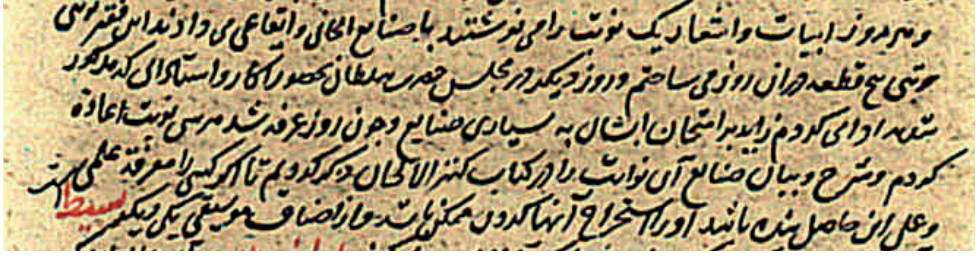 و هر روز ابیات و اشعار یک نوبت را می نوشتند با صنایع الحانی و ایقاعی می دادند این فقیر
نوبتی پنج قطعه در آن روز می ساختم و روز دیگر در مجلس حضرت سلطان بحضور اکابر و استادانی که مذکور
شدند ادا می کردم زاید بر امتحان ایشان به بسیاری صنایع و چون روز عرفه شد هر سی نوبت اعاده
کردم و شرح و بیان صنایع آن نوبات را در کتاب کنز الالحان ذکر کردیم تا اگر کسی را معرفة علمی
و عملی این حاصل شده باشد او را استخراج آنها کردن ممکن باشد و از اصناف موسیقی یکی دیگر بسیط است